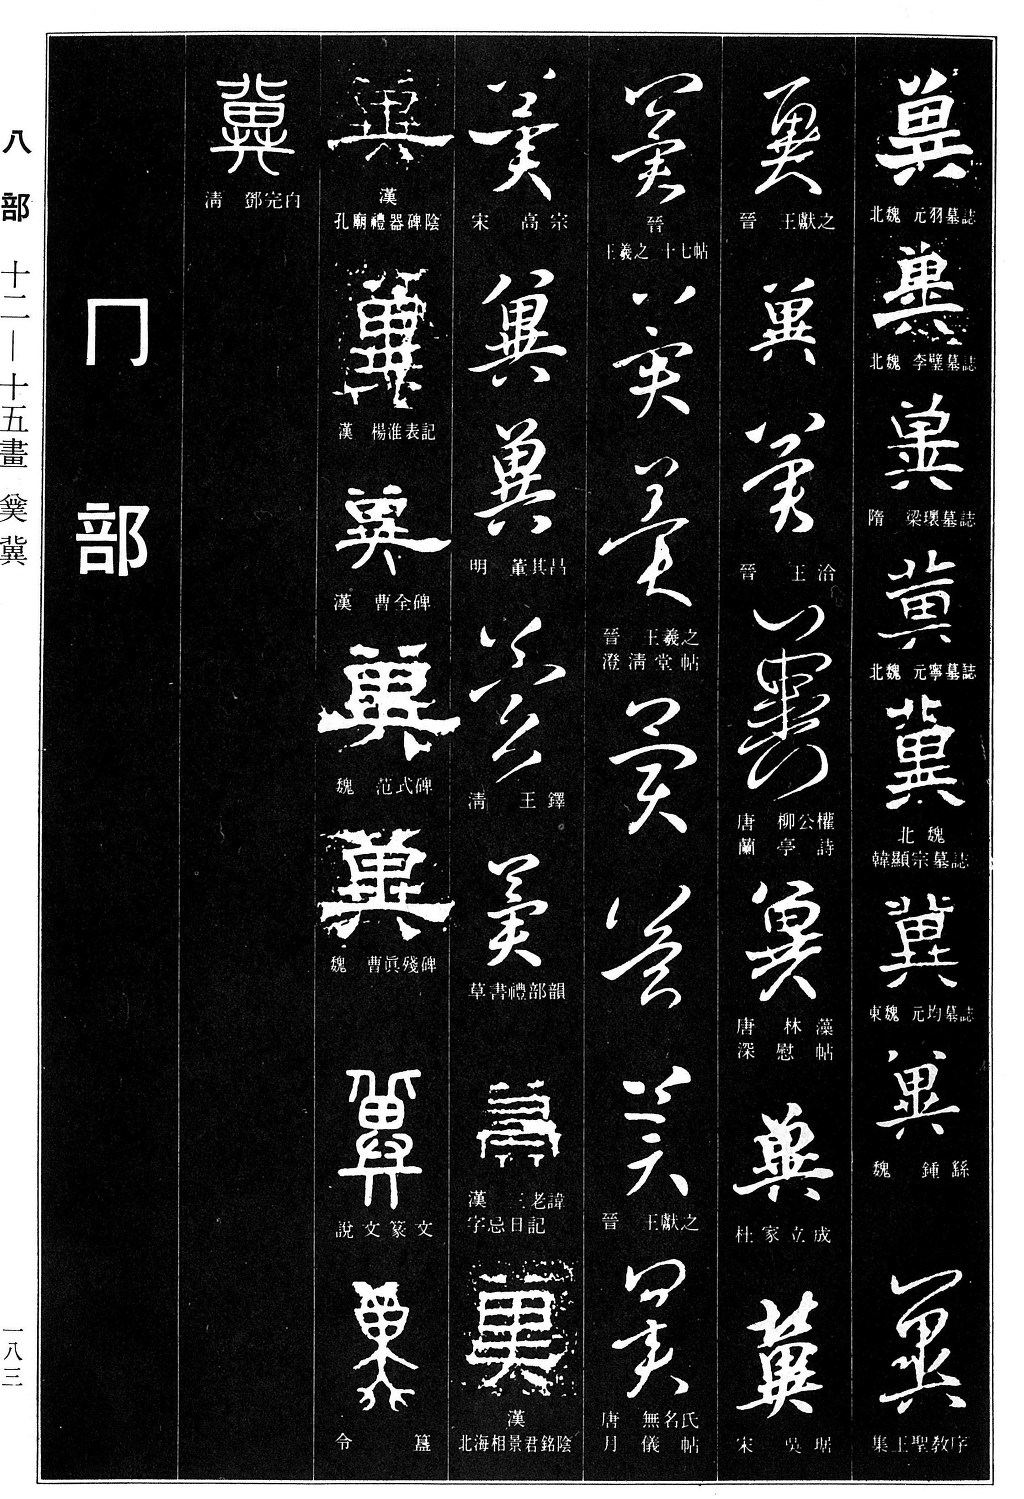 八部
十二—十五畫
冀
一八三
冀
北魏 元羽墓誌
冀
北魏 李璧墓誌
冀
隋 梁瓌墓誌
冀
北魏 元寧墓誌
冀
北魏
韓顯宗墓誌
冀
東魏 元均墓誌
冀
魏 鍾繇
冀
集王聖教序
冀
晉 王獻之
冀
冀
晉 王洽
冀
唐 柳公權
蘭亭詩
冀
唐 林藻
深慰帖
冀
杜家立成
冀
宋 吳琚
冀
晉
王羲之 十七帖
冀
冀
晉 王羲之
澄清堂帖
冀
冀
冀
晉 王獻之
冀
唐 無名氏
月儀帖
冀
宋 高宗
冀
冀
明 董其昌
冀
清 王鐸
冀
草書禮部韻
冀
漢 三老諱
字忌日記
冀
漢
北海相景君銘陰
冀
漢
孔廟禮器碑陰
冀
漢 楊淮表記
冀
漢 曹全碑
冀
魏 范式碑
冀
魏 曹真殘碑
冀
說文篆文
冀
令簋
冀
清 鄧完白
冂部